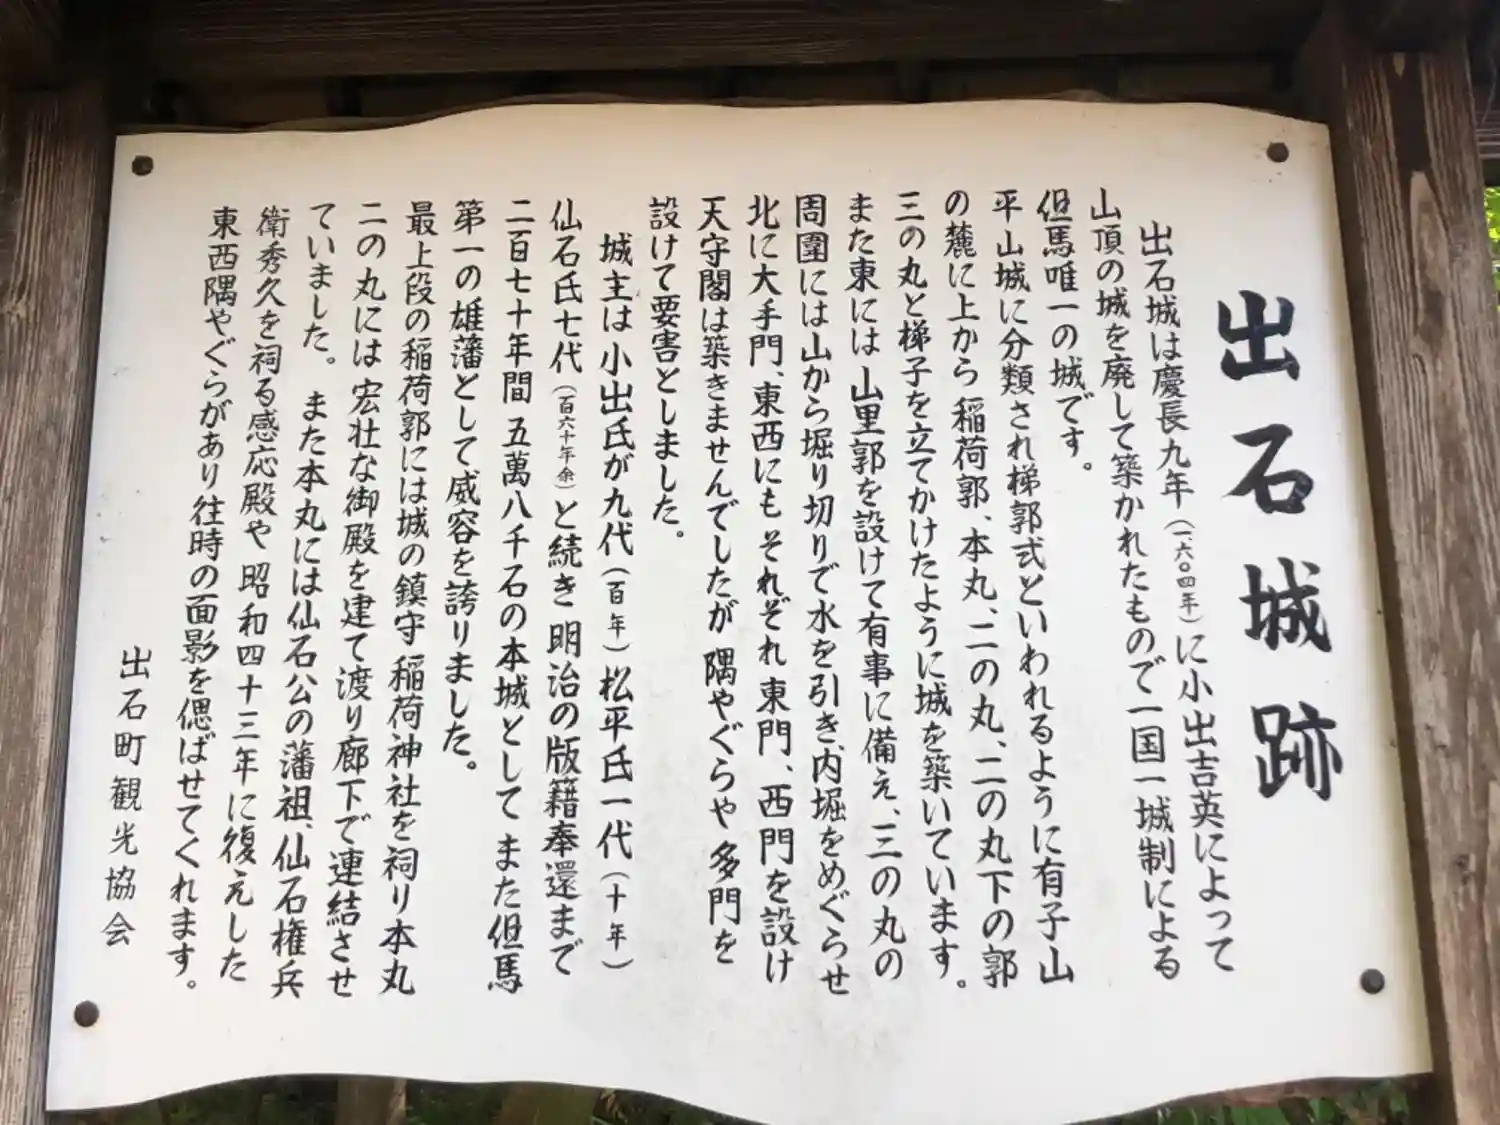 出石城跡
出石城は慶長九年(一、六〇四年)に小出吉英によって
山頂の城を廃して築かれたもので一国一城制による
但馬唯一の城です。
平山城に分類され梯郭式といわれるように有子山
の麓に上から稲荷郭、本丸、二の丸、二の丸下の郭
三の丸と梯子を立てかけたように城を築いています。
また東には山里郭を設けて有事に備え、三の丸の
周囲には山から堀り切りで水を引き、内堀をめぐらせ
北に大手門、東西にもそれぞれ東門、西門を設け
天守閣は築きませんでしたが隅やぐらや多門を
設けて要害としました。
城主は小出氏が九代(百年)松平氏一代(十年)
仙石氏七代(百六十年余)と続き明治の版籍奉還まで
二百七十年間五萬八千石の本城としてまた但馬
第一の雄藩として威容を誇りました。
最上段の稲荷郭には城の鎮守稲荷神社を祠り本丸
二の丸には宏壮な御殿を建て渡り廊下で連結させ
ていました。また本丸には仙石公の藩祖、仙石権兵
衛秀久を祠る感応殿や昭和四十三年に復元した
東西隅やぐらがあり往時の面影を偲ばせてくれます。
出石町観光協会